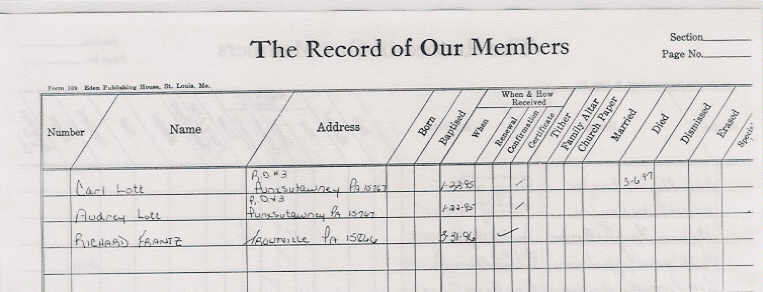 The Record of Our Members
Section
Page No.
Form 109 Eden Publishing House, St. Louis, Mo.
Number
Name
Address
Born
Baptised
When & How
Received
When
Renewal
Confirmation
Certificate
Tither
Family Altar
Church Paper
Married
Died
Dismissed
Erased
R, D #3
Carl Lott Punxsutawney Pa 15767 1-22-95 ✓ 3-6-97
R, D #3
Audrey Lott Punxsutawney PA 15767 1-22-95 ✓
RICHARD FRANTZ TROUTVILLE PA 15866 3-31-96 ✓